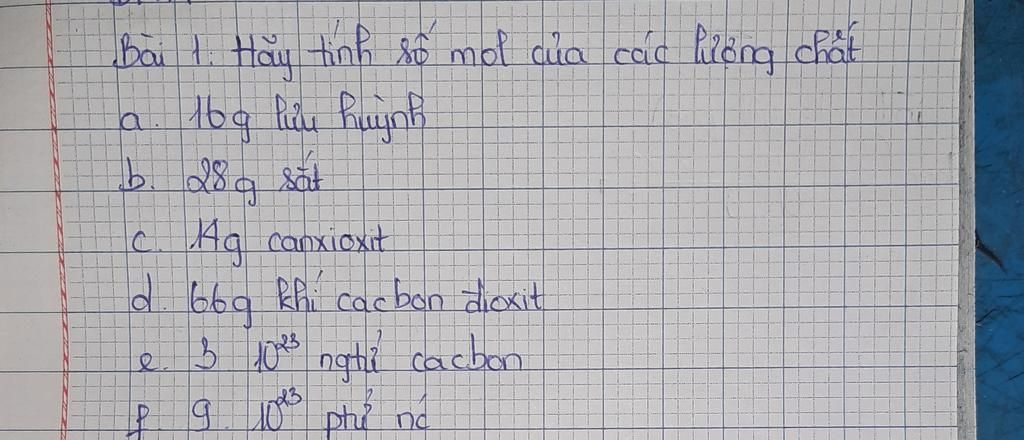 Bài 1: Hãy tính số mol của các lượng chất
a. 16g lưu huỳnh
b. 28g sắt
c. 14g canxioxit
d. 66g khí cacbon đioxit
e. 3 10²³ nghtử cacbon
f 9. 10²³ phtử